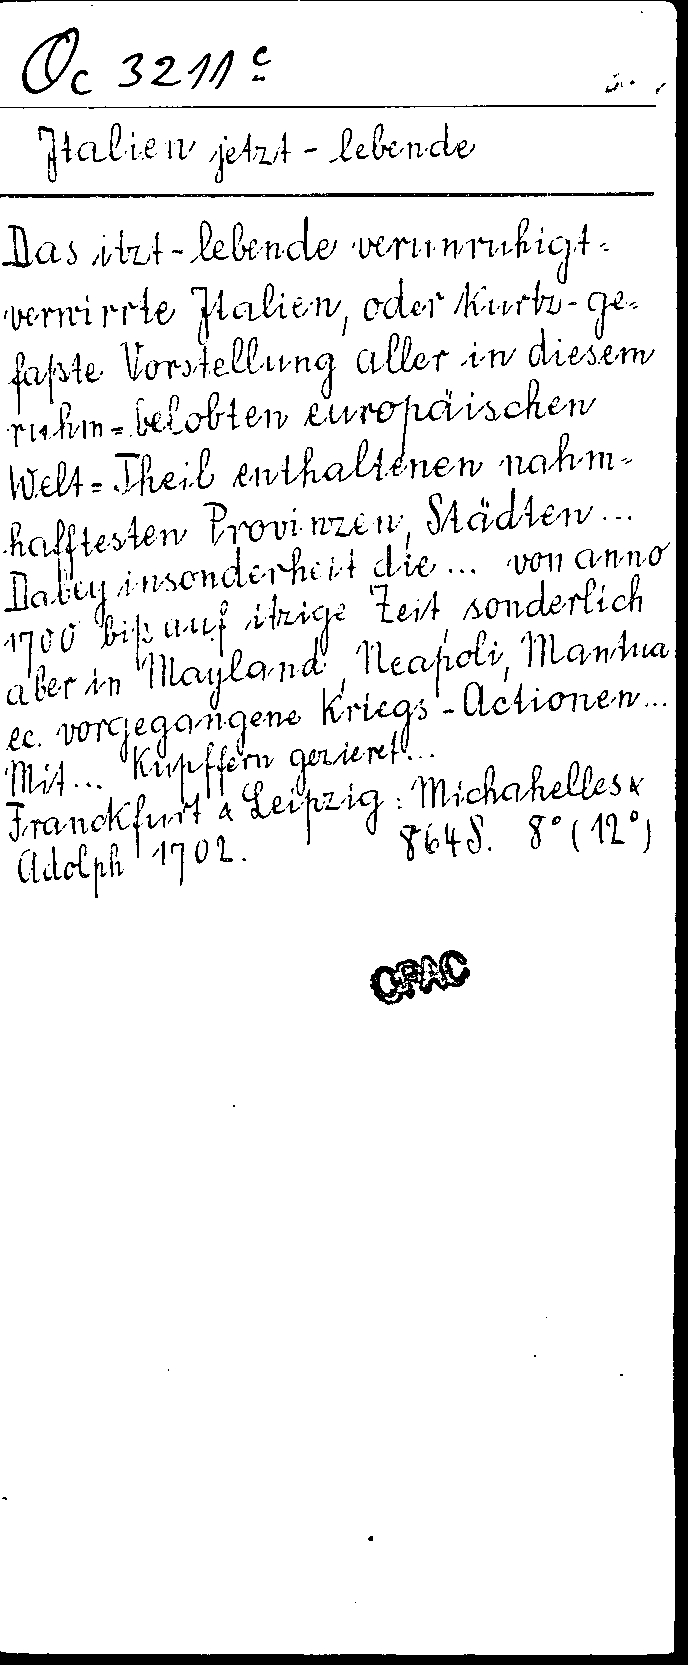 Oc 3211 c
Italien jetzt-lebende
Das itzt-lebende verunruhigt-
verwirrte Italien, oder Kurtz-ge-
faßte Vorstellung aller in diesem
ruhm-belobten europäischen
Welt-Theil enthaltenen nahm-
hafftesten Provinzen, Städten...
Dabey insonderheit die... von anno
1700 biß auf itzige Zeit, sonderlich
aber in Mayland, Neapoli, Mantua
ec. vorgegangene Kriegs-Actionen...
Mit... Kupffern gezieret...
Franckfurt & Leipzig: Michahelles &
Adolph 1702. 864 S. 8° (12°)
OPAC